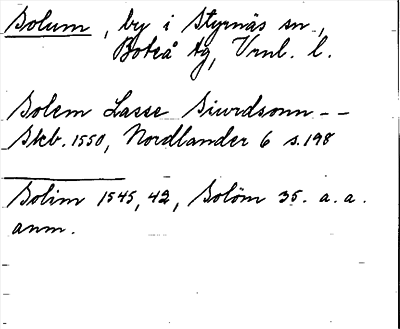 Solum, by i Styrnäs sn.,
Boteå tg, Vrnl. l.
Solem Lasse Siurdsonn - -
Skb. 1550, Nordlander 6 s. 198
Solim 1545, 42, Solöm 35. a. a.
anm.